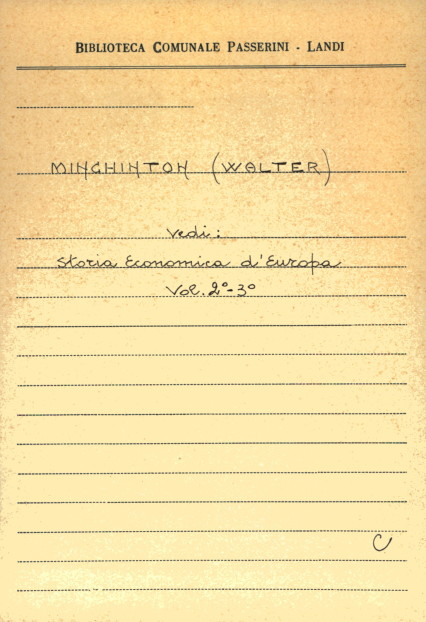 BIBLIOTECA COMUNALE PASSERINI - LANDI
MINCHINTON (WALTER)
Vedi:
Storia Economica d'Europa
Vol. 2º-3º
C